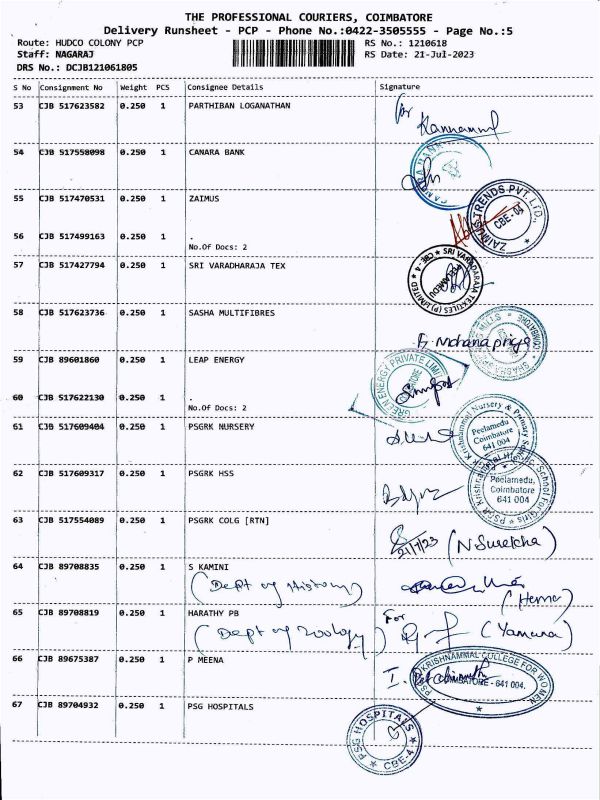 THE PROFESSIONAL COURIERS, COIMBATORE
Delivery Runsheet - PCP - Phone No.:0422-3505555 - Page No.:5
Route: HUDCO COLONY PCP
RS No.: 1210618
Staff: NAGARAJ
RS Date: 21-Jul-2023
DRS No.: DCJB121061805
S No Consignment No Weight PCS Consignee Details Signature
53 CJB 517623582 0.250 1 PARTHIBAN LOGANATHAN
for
Kannammal
54 CJB 517558098 0.250 1 CANARA BANK
55 CJB 517470531 0.250 1 ZAIMUS
TRENDS PVT. LTD.,
CBE-04
56 CJB 517499163 0.250 1 .
No.Of Docs: 2
57 CJB 517427794 0.250 1 SRI VARADHARAJA TEX
★ SRI VARADARAJA TEXTILES (P) LIMITED ★ CBE - 4
PEELAMEDU
58 CJB 517623736 0.250 1 SASHA MULTIFIBRES
Mohanapriya
59 CJB 89601860 0.250 1 LEAP ENERGY
GREEN ENERGY PRIVATE LIMITED
60 CJB 517622130 0.250 1 .
No.Of Docs: 2
61 CJB 517609404 0.250 1 PSGRK NURSERY
Krishnammal Nursery & Primary
Peelamedu
Coimbatore
641 004
62 CJB 517609317 0.250 1 PSGRK HSS
PSGR Krishnammal Hr. Sec. School for Girls
Peelamedu,
Coimbatore
641 004
63 CJB 517554089 0.250 1 PSGRK COLG [RTN]
21/7/23 (N Surekha)
64 CJB 89708835 0.250 1 S KAMINI
(Dept of History)
(Hema)
65 CJB 89708819 0.250 1 HARATHY PB
(Dept of Zoology)
For
(Yamuna)
66 CJB 89675387 0.250 1 P MEENA
PSGR KRISHNAMMAL COLLEGE FOR WOMEN
COIMBATORE - 641 004.
67 CJB 89704932 0.250 1 PSG HOSPITALS
PSG HOSPITALS
CBE-4